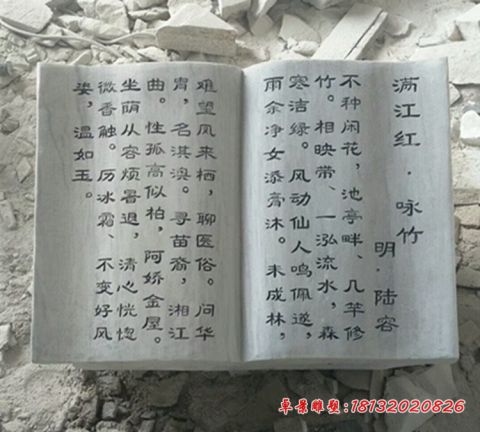 满江红·咏竹
明·陆容
不种闲花，池亭畔、几竿修
竹。相映带、一泓流水，森
寒洁绿。风动仙人鸣佩遂，
雨余净女添膏沐。未成林，
难望凤来栖，聊医俗。问华
胄，名淇澳。寻苗裔，湘江
曲。性孤高似柏，阿娇金屋。
坐荫从容烦暑退，清心恍惚
微香触。历冰霜、不变好风
姿，温如玉。
卓景雕塑:18132020826